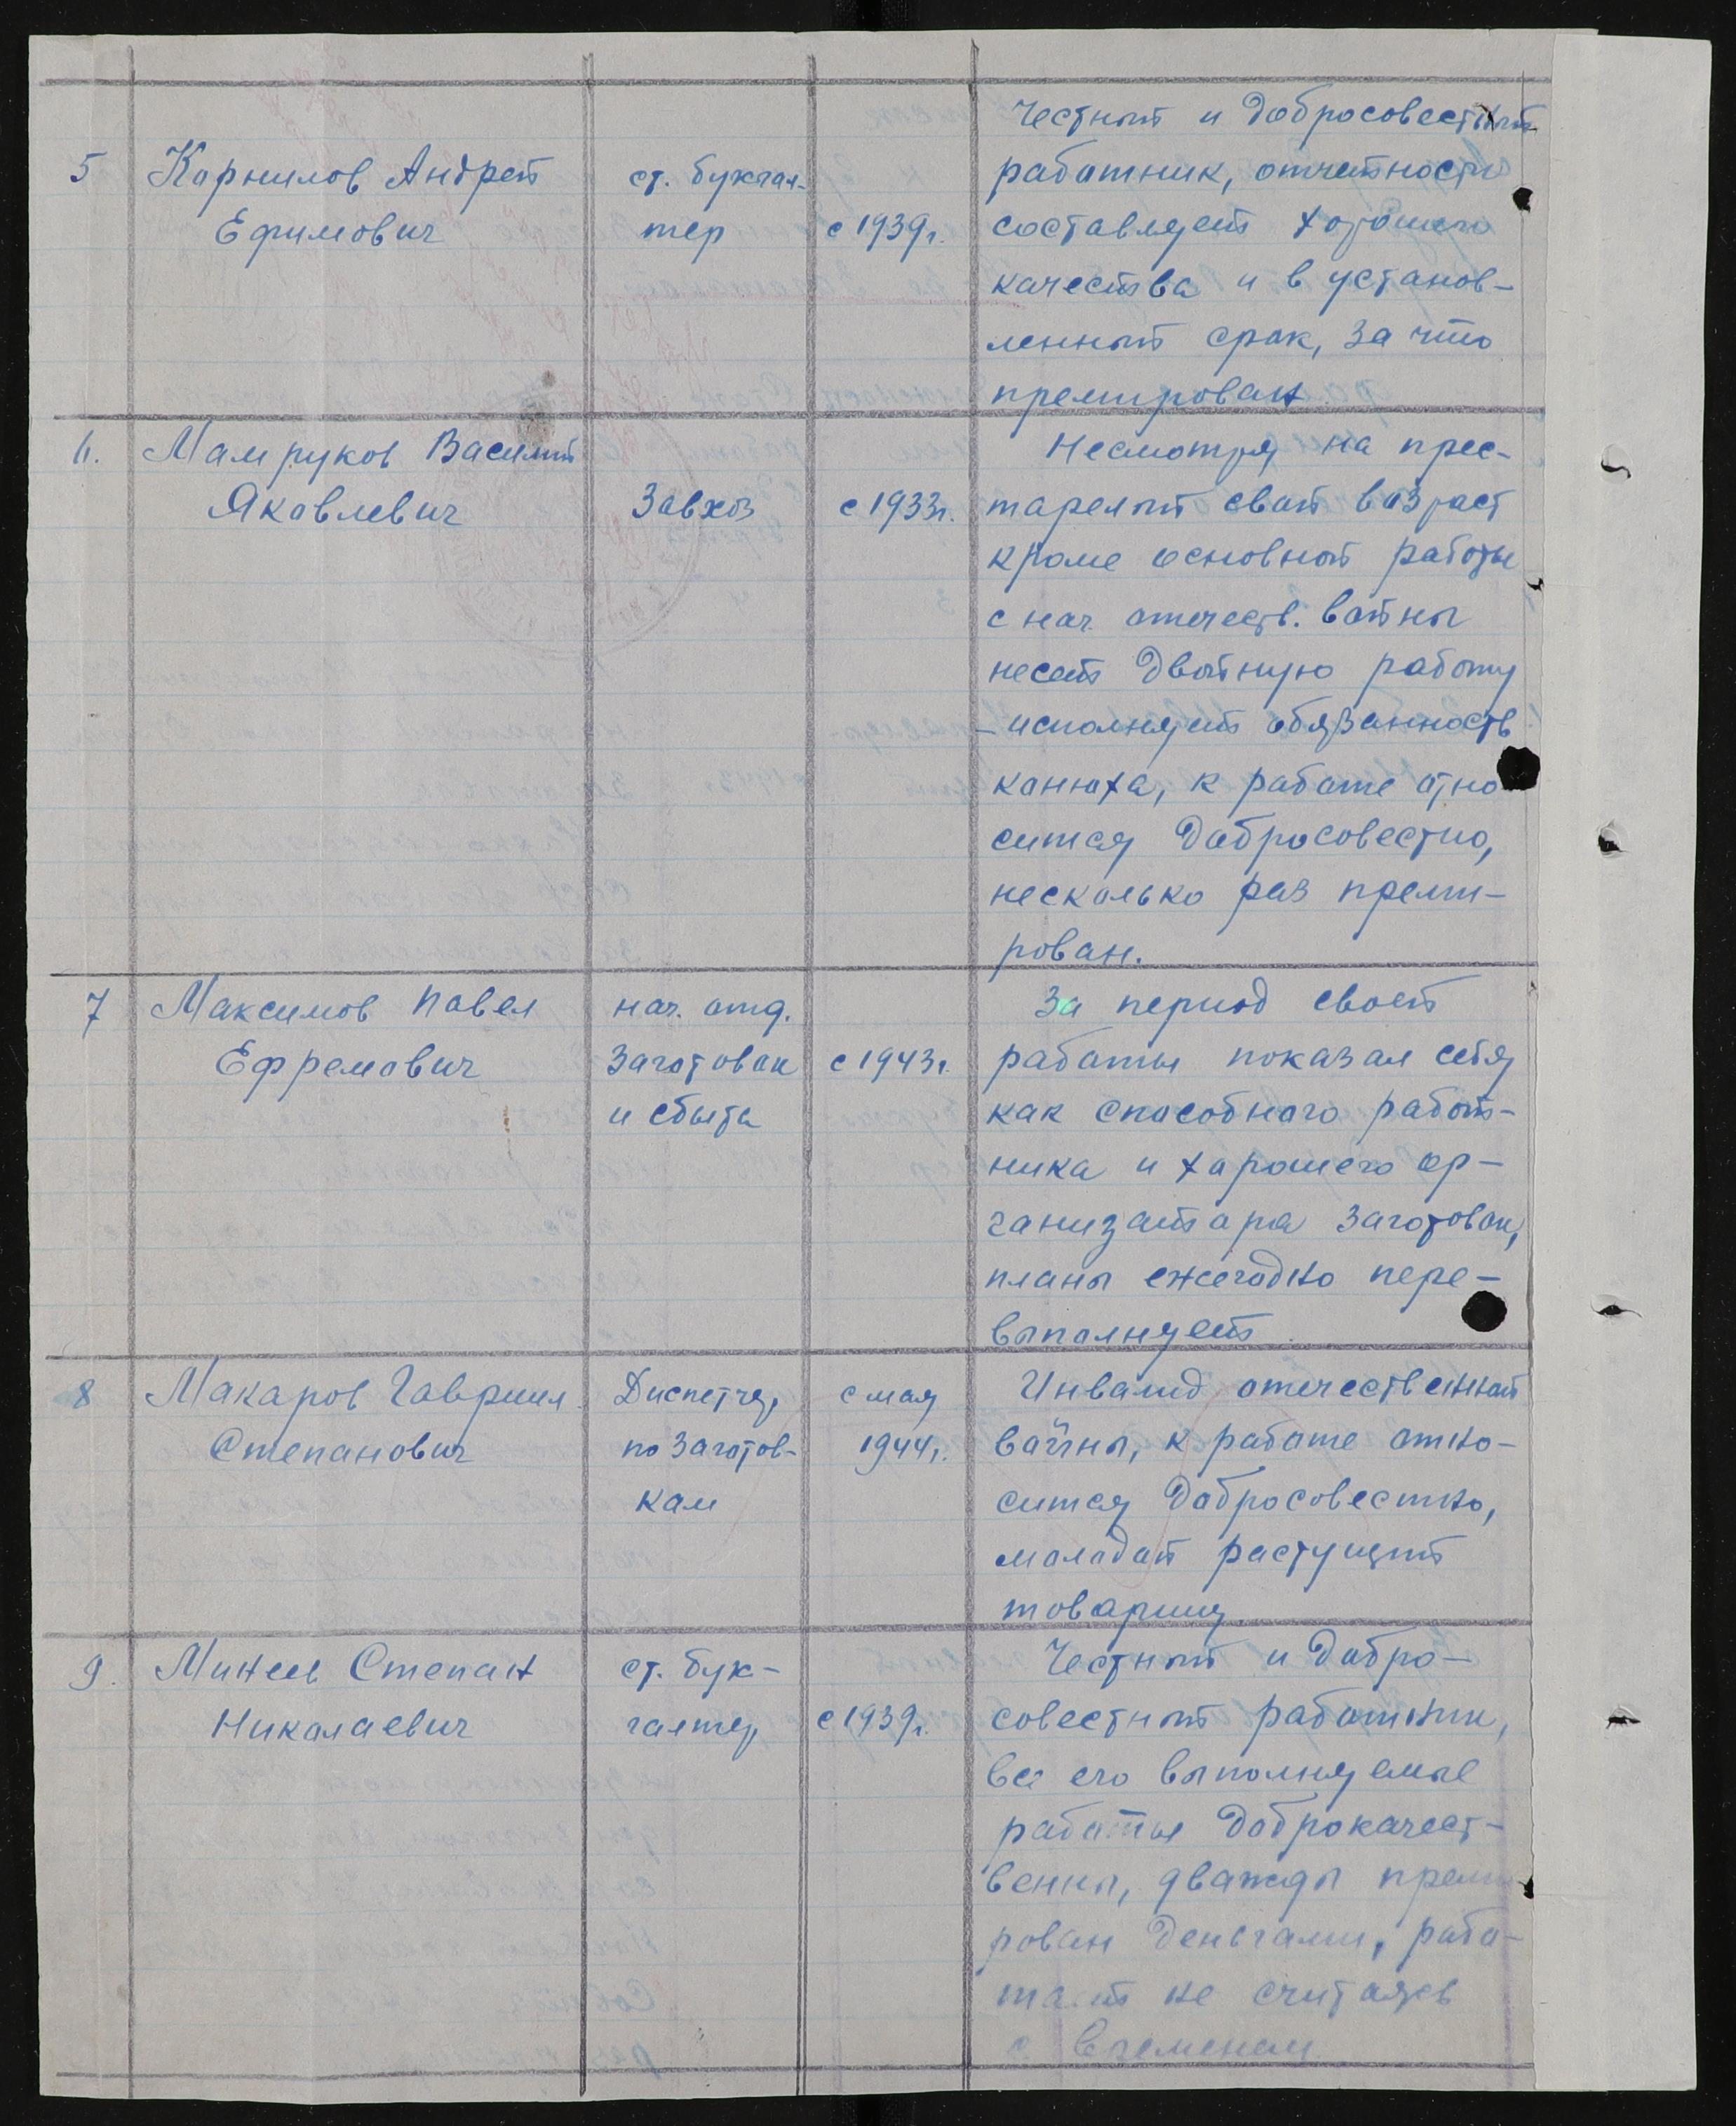 5
Корнилов Андрей
Ефимович
ст. бухгал-
тер
с 1939г.
Честный и добросовестный
работник, отчетности
составляет хорошего
качества и в установ-
ленный срок, за что
премирован
6.
Мамруков Василий
Яковлевич
Завхоз
с 1933г.
Несмотря на прес-
тарелый свой возраст
кроме основной работы
с нач. отечеств. войны
несет двойную работу
- исполняет обязанность
конюха, к работе отно
сится добросовестно,
несколько раз преми-
рован.
7
Максимов Павел
Ефремович
нач. отд.
Заготовок
и сбыта
с 1943г.
За период своей
работы показал себя
как способного работ-
ника и хорошего ор-
ганизатора заготовок,
планы ежегодно пере-
выполняет.
8
Макаров Гавриил
Степанович
Диспетчер
по Заготов-
кам
с мая
1944г.
Инвалид отечественной
войны, к работе отно-
сится добросовестно,
молодой растущий
товарищ.
9.
Минеев Степан
Николаевич
ст. бух-
галтер
с 1939г.
Честный и добро-
совестный работник,
все его выполняемые
работы доброкачест-
венны, дважды преми
рован деньгами, рабо-
тает не считаясь
с временем